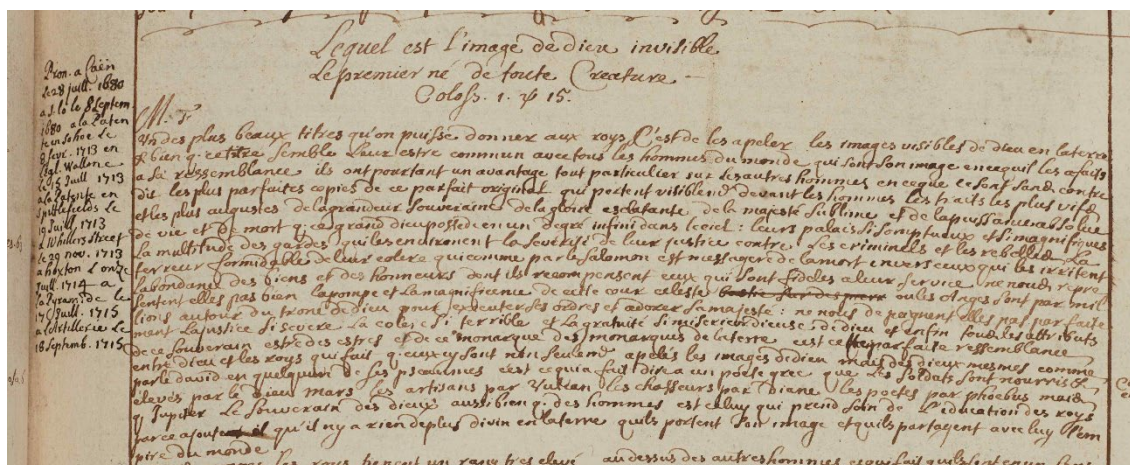 Lequel est l'image de dieu invisible
Le premier né de toute Creature
Coloss. 1. ꝟ 15.
Pron. a Caën
le 28 juill. 1680
a S. lo le 8 Septem
1680 a la Paten
te en Sohoe le
8 fevr. 1713 en
Egl. Wallone
le 15 Juill 1713
a la Patente en
Spittlefields le
19 Juill. 1713
a Whillers Street
le 29 nov. 1713
a hoxton l'onze
Juill. 1714 a
la Pyramide le
17 Juill. 1715
a l'artillerie le
18 Septemb. 1715
M. F.
Un des plus beaux titres qu'on puisse donner aux roys C'est de les apeler les images visibles de dieu en la terre
& bien q. ce titre semble leur estre commun avec tous les hommes du monde qui sont son image en ce qu'il les a faits
a sa ressemblance ils ont pourtant un avantage tout particulier sur les autres hommes en ce que ce sont sans contre
dit les plus parfaites copies de ce parfait original qui portent visiblemt devant les hommes les traits les plus vifs
et les plus augustes de la grandeur souveraine de la gloire esclatante de la majesté sublime et de la puissance absolue
de vie et de mort q. ce grand dieu possede en un degré infini dans le ciel : leurs palais si somptueux et si magnifiques
La multitude des gardes qui les environnent la severité de leur justice contre les criminels et les rebelles La
terreur formidable de leur colere qui comme parle Salomon est messagere de la mort envers ceux qui les irritent
l'abondance des biens et des honneurs dont ils recompensent ceux qui sont fideles a leur service ne nous repre
sentent elles pas bien la pompe et la magnificence de cette cour celeste ou les Anges sont par mil
lions autour du trone de dieu pour executer ses ordres et adorer sa majesté : ne nous depeignent elles pas parfaite
ment la justice si severe la colere si terrible et la gratuité si misericordieuse de dieu et enfin tous les attributs
de ce souverain estre des estres et de ce monarque des monarques de la terre c'est cette parfaite ressemblance
entre dieu et les roys qui fait q. ceux cy sont non seulemt apelés les images de dieu mais des dieux mesmes comme
parle david en quelqu'un de ses pseaulmes c'est ce qui a fait dire a un poete grec que les soldats sont nourris &
élevés par le dieu mars les artisans par Vulcan les chasseurs par Diane les poetes par phoebus mais
q. Jupiter le souverain des dieux aussi bien q. des hommes est celuy qui prend soin de l'education des roys
parce ajoute il qu'il n'y a rien de plus divin en la terre qu'ils portent son image et qu'ils partagent avec luy l'em
pire du monde
les roys tienent un rang tres elevé au dessus des autres hommes